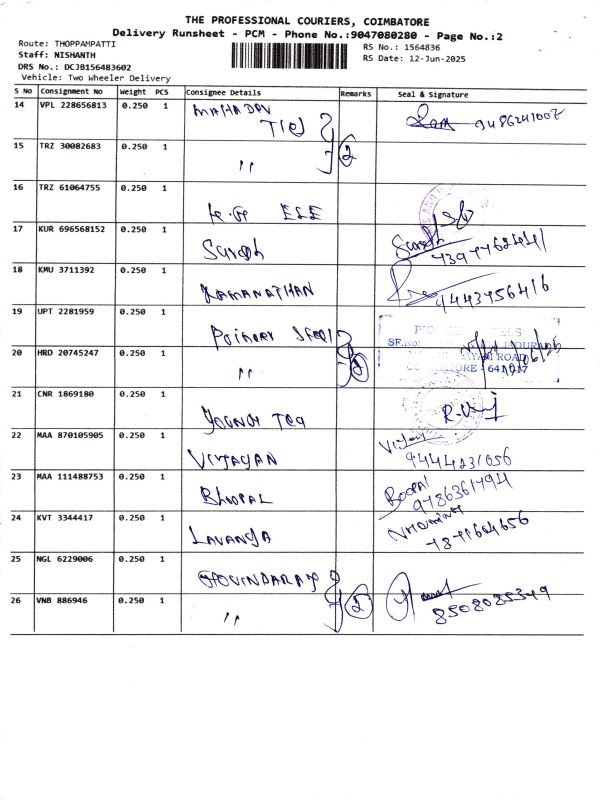 THE PROFESSIONAL COURIERS, COIMBATORE
Delivery Runsheet - PCM - Phone No.:9047080280 - Page No.:2
Route: THOPPAMPATTI
Staff: NISHANTH
DRS No.: DCJB156483602
Vehicle: Two Wheeler Delivery
RS No.: 1564836
RS Date: 12-Jun-2025
S No Consignment No Weight PCS Consignee Details Remarks Seal & Signature
14 VPL 228656813 0.250 1 MAHADEV
15 TRZ 30082683 0.250 1 " 2
16 TRZ 61064755 0.250 1
17 KUR 696568152 0.250 1 Suresh Suresh
18 KMU 3711392 0.250 1 RAMANATHAN 9443756416
19 UPT 2281959 0.250 1 Pioneer
20 HRD 20745247 0.250 1 " 2 ROAD
21 CNR 1869180 0.250 1
22 MAA 870105905 0.250 1 VIJAYAN Vijay
9444231656
23 MAA 111488753 0.250 1 BHOPAL BOOPAl
24 KVT 3344417 0.250 1 LAVANYA
25 NGL 6229006 0.250 1 GOVINDARAJ
26 VNB 886946 0.250 1 " 2 8508085349